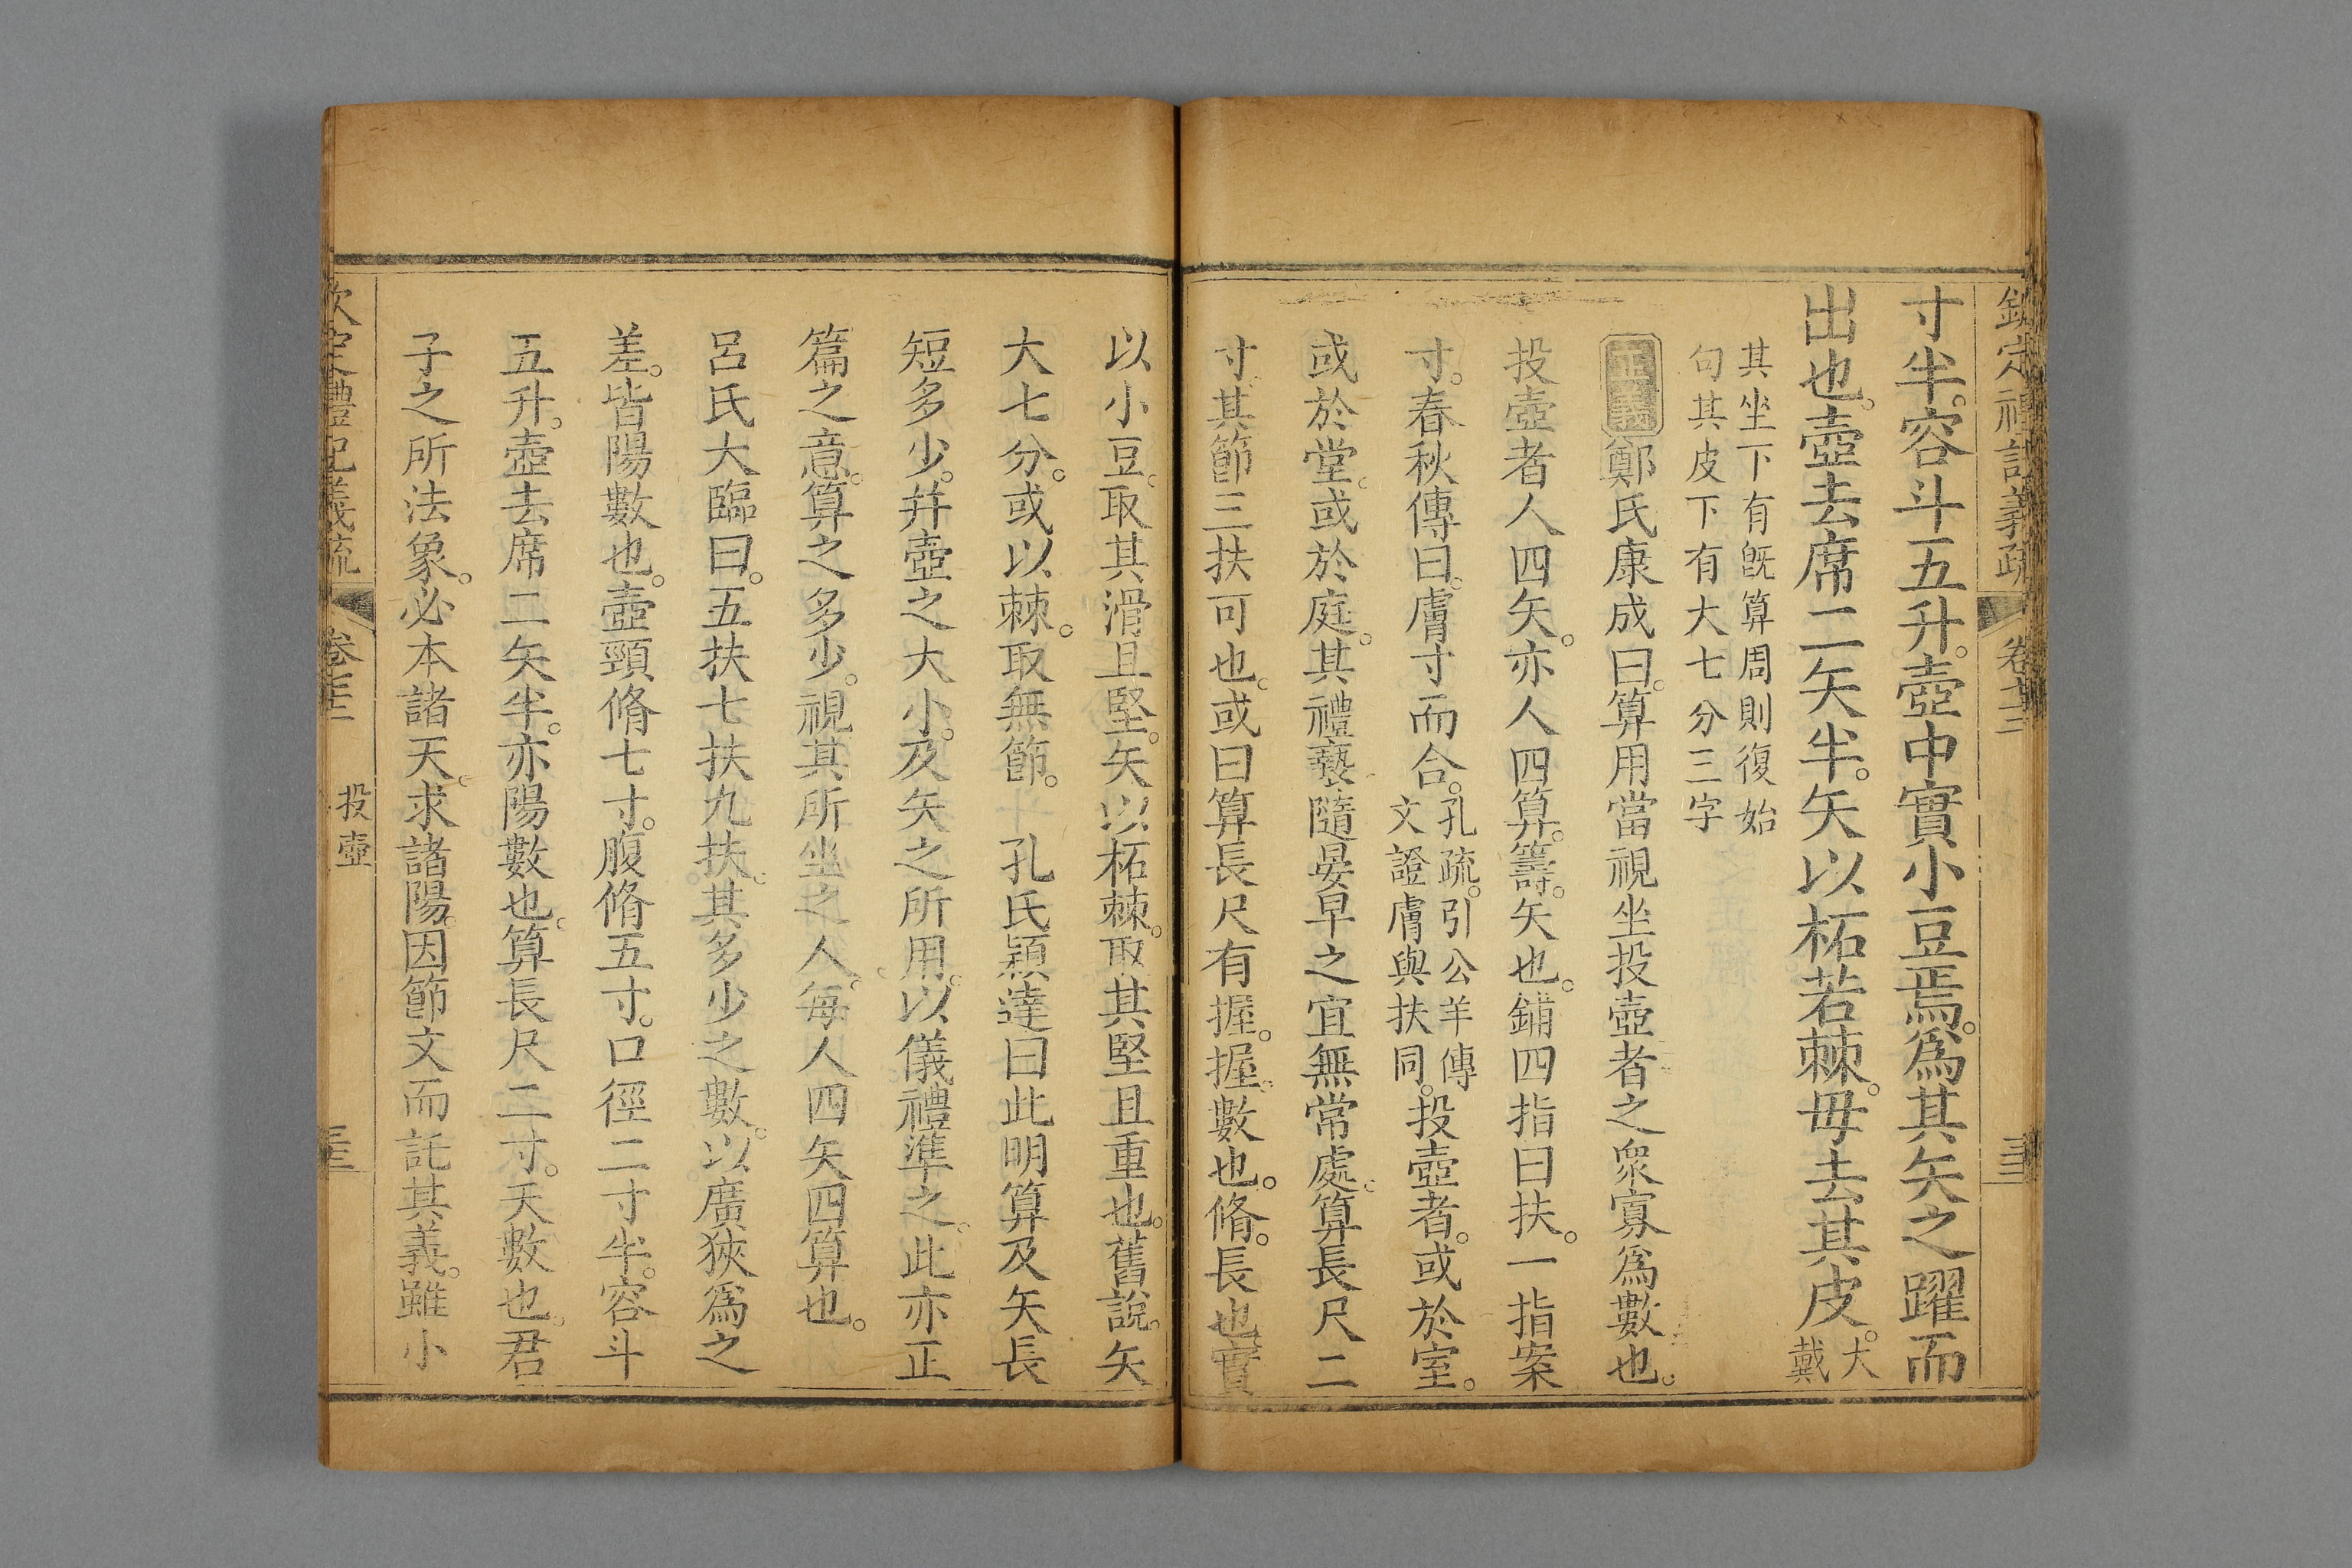 欽定禮記義疏 卷 三
寸半。容斗五升。壺中實小豆焉。爲其矢之躍而
出也。壺去席二矢半。矢以柘若棘。毋去其皮。大戴
其坐下有旣算周則復始
句其皮下有大七分三字
正義鄭氏康成曰。算用當視坐投壺者之衆寡爲數也。
投壺者人四矢。亦人四算。籌。矢也。鋪四指曰扶。一指案
寸。春秋傳曰。膚寸而合。孔疏。引公羊傳文證膚與扶同。投壺者。或於室。
或於堂。或於庭。其禮褻隨晏早之宜無常處。算長尺二
寸。其節三扶可也。或曰算長尺有握。握。數也。脩。長也。實
以小豆。取其滑且堅。矢以柘棘。取其堅且重也。舊說。矢
大七分。或以棘。取無節。 孔氏穎達曰此明算及矢長
短多少。幷壺之大小。及矢之所用。以儀禮準之。此亦正
篇之意。算之多少。視其所坐之人。每人四矢四算也。
呂氏大臨曰。五扶七扶九扶。其多少之數。以廣狹爲之
差。皆陽數也。壺頸脩七寸。腹脩五寸。口徑二寸半。容斗
五升。壺去席二矢半。亦陽數也。算長尺二寸。天數也。君
子之所法象。必本諸天。求諸陽。因節文而託其義。雖小
欽定禮記義疏 卷 投壺